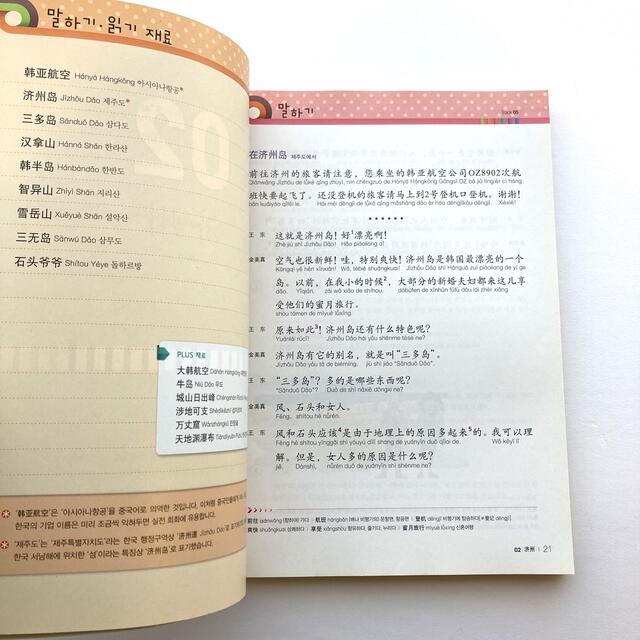 말하기·읽기 재료
韩亚航空 Hányà Hángkōng 아시아나항공*
济州岛 Jìzhōu Dǎo 제주도*
三多岛 Sānduō Dǎo 삼다도
汉拿山 Hànná Shān 한라산
韩半岛 Hánbàndǎo 한반도
智异山 Zhìyì Shān 지리산
雪岳山 Xuěyuè Shān 설악산
三无岛 Sānwú Dǎo 삼무도
石头爷爷 Shítou Yéye 돌하르방
02
PLUS 재료
大韩航空 Dàhán Hángkōng
牛岛 Niú Dǎo 우도
城山日出峰
涉地可支 Shèdìkězhī 섭지코지
万丈窟 Wànzhàngkū 만장굴
天地渊瀑布 Tiāndìyuān
* '韩亚航空'은 '아시아나항공'을 중국어로 의역한 것입니다. 이처럼
한국의 기업 이름은 미리 조금씩 익혀두면 실전 회화에 유용합니다.
* '제주도'는 '제주특별자치도'라는 한국 행정구역상 '济州道 Jìzhōu Dào'로
한국 서남해에 위치한 '섬'이라는 특징상 '济州岛'로 표기했습니다.
말하기
Track 05
在济州岛 제주도에서
前往济州的旅客请注意，您乘坐的韩亚航空公司OZ8902次航
Qiánwǎng Jìzhōu de lǚkè qǐng zhùyì, nín chéngzuò de Hányà Hángkōng Gōngsī OZ bā jiǔ líng èr cì háng
班快要起飞了。还没登机的旅客请马上到2号登机口登机。谢谢！
bān kuàiyào qǐfēi le. Hái méi dēngjī de lǚkè qǐng mǎshàng dào èr hào dēngjīkǒu dēngjī. Xièxie!
王 东 这就是济州岛！好¹漂亮啊！
Zhè jiù shì Jìzhōu Dǎo! Hǎo piàoliang a!
金美真 空气也很新鲜！哇，特别爽快！济州岛是韩国最漂亮的一个
Kōngqì yě hěn xīnxiān! Wā, tèbié shuǎngkuai! Jìzhōu Dǎo shì Hánguó zuì piàoliang de yí ge
岛。以前，在我小的时候²，大部分的新婚夫妇都来这儿享
dǎo. Yǐqián, zài wǒ xiǎo de shíhou, dàbùfen de xīnhūn fūfù dōu lái zhèr xiǎng
受他们的蜜月旅行。
shòu tāmen de mìyuè lǚxíng.
王 东 原来如此³！济州岛还有什么特色呢？
Yuánlái rúcǐ! Jìzhōu Dǎo hái yǒu shénme tèsè ne?
金美真 济州岛有它的别名，就是叫“三多岛”。
Jìzhōu Dǎo yǒu tā de biémíng, jiù shì jiào “Sānduō Dǎo”.
王 东 “三多岛”？多的是哪些东西呢？
“Sānduō Dǎo”? Duō de shì nǎxiē dōngxi ne?
金美真 风、石头和女人。
Fēng, shítou hé nǚrén.
王 东 风和石头应该⁴是由于地理上的原因多起来⁵的。我可以理
Fēng hé shítou yīnggāi shì yóuyú dìlǐ shang de yuányīn duō qǐlai de. Wǒ kěyǐ lǐ
解。但是，女人多的原因是什么呢？
jiě. Dànshì, nǚrén duō de yuányīn shì shénme ne?
前往 qiánwǎng (향하여) 가다 | 航班 hángbān (배나 비행기의) 운항편, 항공편 | 登机 dēngjī 비행기에 탑승하다(=登记 dēngjì)
爽快 shuǎngkuai 상쾌하다 | 享受 xiǎngshòu 향유하다, 즐기다, 누리다 | 蜜月旅行 mìyuè lǚxíng 신혼여행
02 济州 | 21